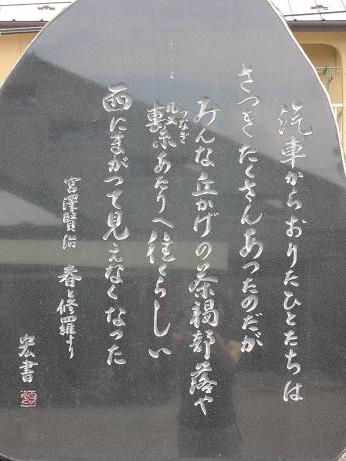 汽車からおりたひとたちは
さつきたくさんあつたのだが
みんな丘かげの茶褐部落や
繋つなぎあたりへ往くらしい
西にまがつて見えなくなつた
宮澤賢治 春と修羅より
宏書